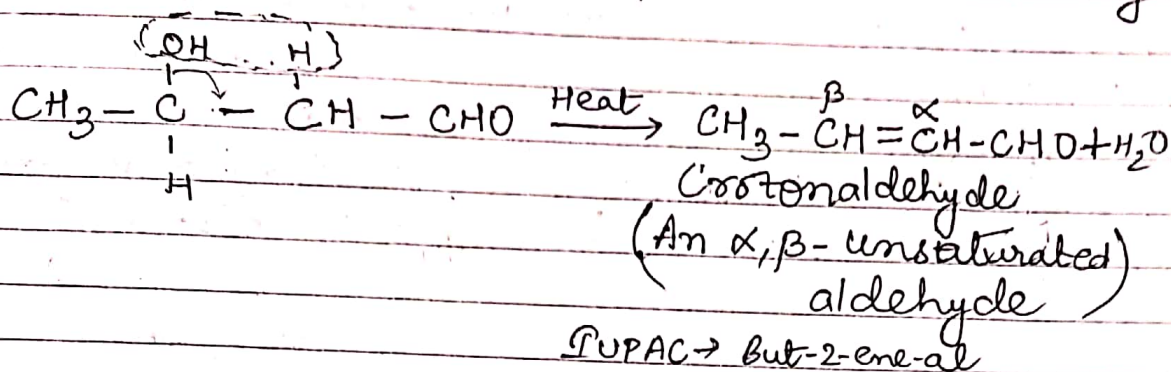 OH H
CH₃ – C – CH – CHO Heat → CH₃ – CH = CH – CHO + H₂O
β α
H
Crotonaldehyde
(An α, β- unsaturated)
aldehyde
IUPAC → But-2-ene-al